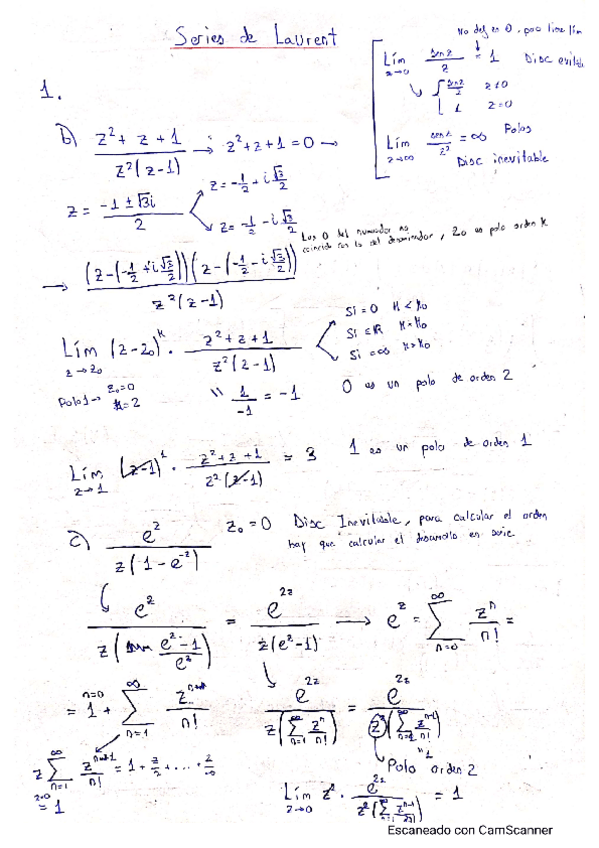 Series de Laurent
No def en 0, pero tiene lím
Lím z→0 sen z / z = 1 Disc evitable
{ sen z / z z≠0
1 z=0
Lím z→∞ sen z / z² = ∞ Polos
Disc inevitable
1.
b) z² + z + 1 / z²(z-1) → z² + z + 1 = 0 →
z = -1 ± √3i / 2
z = -1/2 + i √3/2
z = -1/2 - i √3/2
Los 0 del numerador no
coincide con los del denominador, z₀ es polo orden k
→ (z-(-1/2 + i √3/2))(z-(-1/2 - i √3/2)) / z²(z-1)
Lím z→z₀ (z-z₀)^k · z² + z + 1 / z²(z-1)
Si = 0 k < k₀
Si ∈ ℝ k = k₀
Si = ∞ k > k₀
Polo 1 → z₀=0 k=2
" 1/-1 = -1 0 es un polo de orden 2
Lím z→1 (z-1)¹ · z² + z + 1 / z²(z-1) = 3 1 es un polo de orden 1
c) e^z / z(1-e^-z) z₀ = 0 Disc Inevitable, para calcular el orden
hay que calcular el desarrollo en serie
e^z / z(e^z-1 / e^z) = e^2z / z(e^z-1) → e^z = ∑ n=0 ∞ z^n / n! =
= n=0 1 + ∑ n=1 ∞ z^n / n! e^2z / z(∑ n=1 ∞ z^n / n!) = e^2z / z²(∑ n=1 ∞ z^n-1 / n!)
z ∑ n=1 ∞ z^n-1 / n! = 1 + z/2 + ... +
z=0 = 1
"1
Polo orden 2
Lím z→0 z² · e^2z / z²(∑ n=1 ∞ z^n-1 / n!) = 1
Escaneado con CamScanner